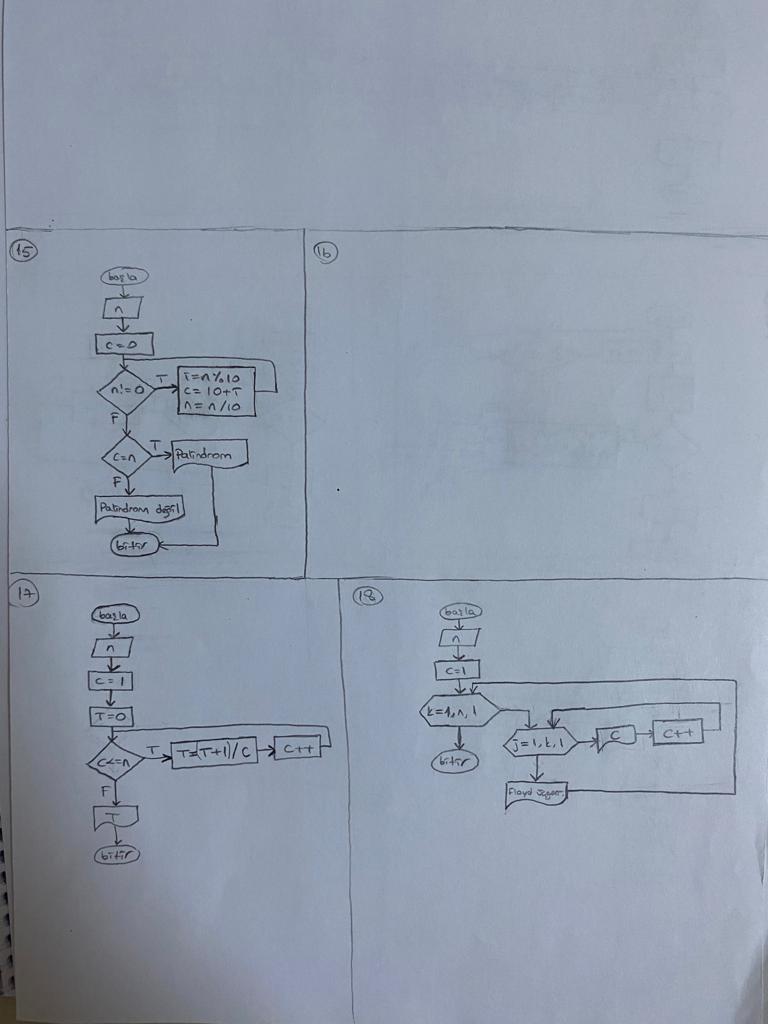 15
başla
n
c=0
n!=0
T
T=n%10
c= 10+T
n= n/10
F
c=n
T
Palindrom
F
Palindrom değil
bitir
16
17
başla
n
c=1
T=0
c<=n
T
T=(T+1)/c
c++
F
T
bitir
18
başla
n
c=1
k=1,n,1
j=1,k,1
c
c++
bitir
Floyd